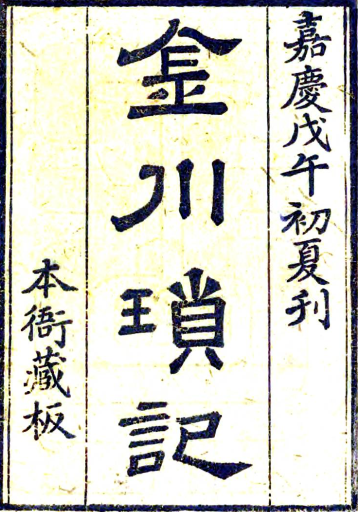 嘉慶戊午初夏刊
金川瑣記
本衙藏板